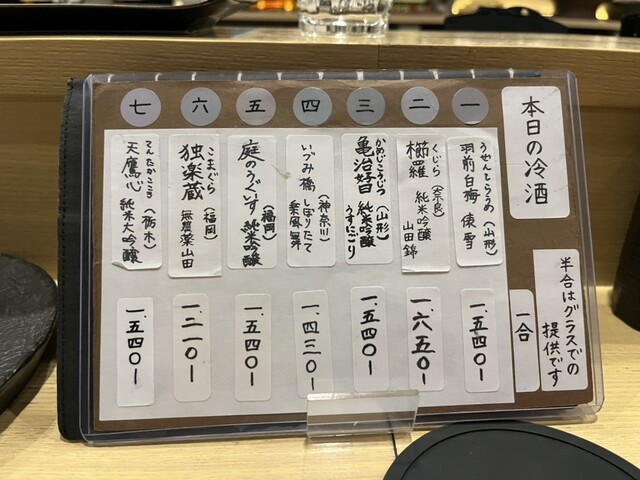 本日の冷酒
半合はグラスでの
提供です
一合
一
うぜんしらうめ（山形）
羽前白梅 俵雪
一、五四〇ー
二
くじら（奈良）
櫛羅 純米吟醸
山田錦
一、六五〇ー
三
かめじこうじつ（山形）
亀治好日 純米吟醸
うすにごり
一、五四〇ー
四
いづみ橋（神奈川）
しぼりたて
楽風舞
一、四三〇ー
五
庭のうぐいす（福岡）
純米吟醸
一、五四〇ー
六
こまぐら（福岡）
独楽蔵 無農薬山田
一、二一〇ー
七
てんたかこころ（栃木）
天鷹心 純米大吟醸
一、五四〇ー